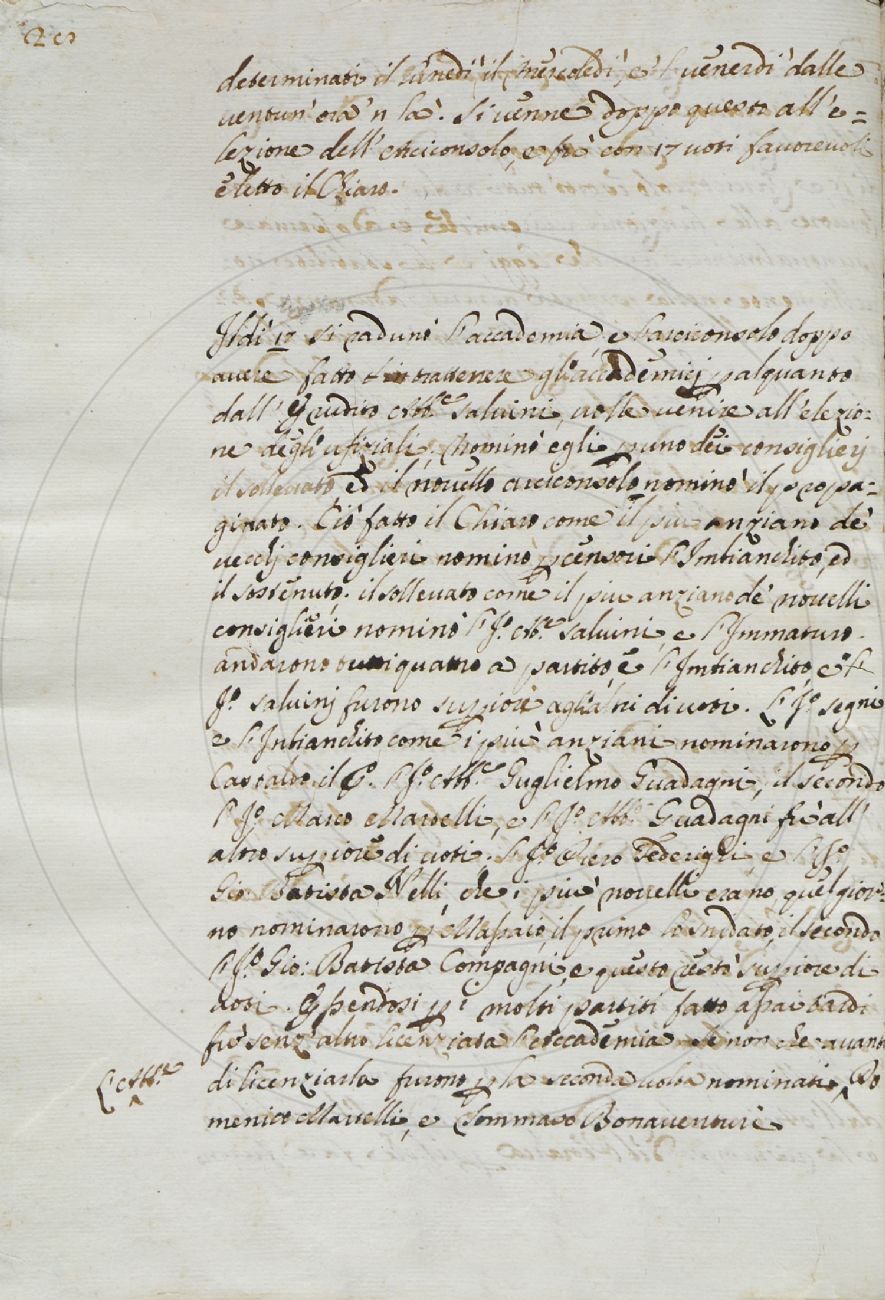 determinati il lunedì, il mercoledì, e 'l venerdì dalle
ventun' ora 'n là. Si venne doppo questo all' e=
lezione dell' Arciconsolo, e fù con 17 voti favorevoli
eletto il Chiaro.
Il dì 17 si radunò l'accademia, e l'arciconsolo doppo
avere fatto trattenere gl'accademici p alquanto
dall' Erudito Abb.e Salvini, volle venire all' elezio=
ne degl' ufiziali. Nominò egli p uno dei consiglieri
il sollevato, ed il novello arciconsolo nominò il propa=
ginato. Ciò fatto il Chiaro come il più anziano de'
vecchi consiglieri nominò p censori l'Imbiandito, ed
il sostenuto; il sollevato come il più anziano de' novelli
consiglieri nominò l'Ill.o Ab.e Salvini, e l'Immaturo.
andarono tutti quattro a partito, e l'Imbiandito, e l'
Ill.o Salvini furono superiori agl'altri di voti. L'Ill.o Segni
e l'Inbiandito come i più anziani nominarono p
Castaldo il P.o l'Ill.o Abb.e Guglielmo Guadagni, il secondo
l'Ill.o Marco Martelli, e l'Ill.o Abb.e Guadagni fù all'
altro superiore di voti. l'Ill.o Piero Federighi e l'Ill.o
Gio: Batista Nelli, che i più novelli erano quel gior=
no nominarono p Massaio, il primo lo snidato, il secondo
l'Ill.o Gio: Batista Compagni, e questo restò superiore di
voti. Essendosi p i molti partiti fatto assai tardi
fù senz' altro licenziata l'Accademia se non che avanti
di licenziarla furono p la seconda volta nominati Do
L'Abb.e
menico Martelli, e Tommaso Bonaventuri